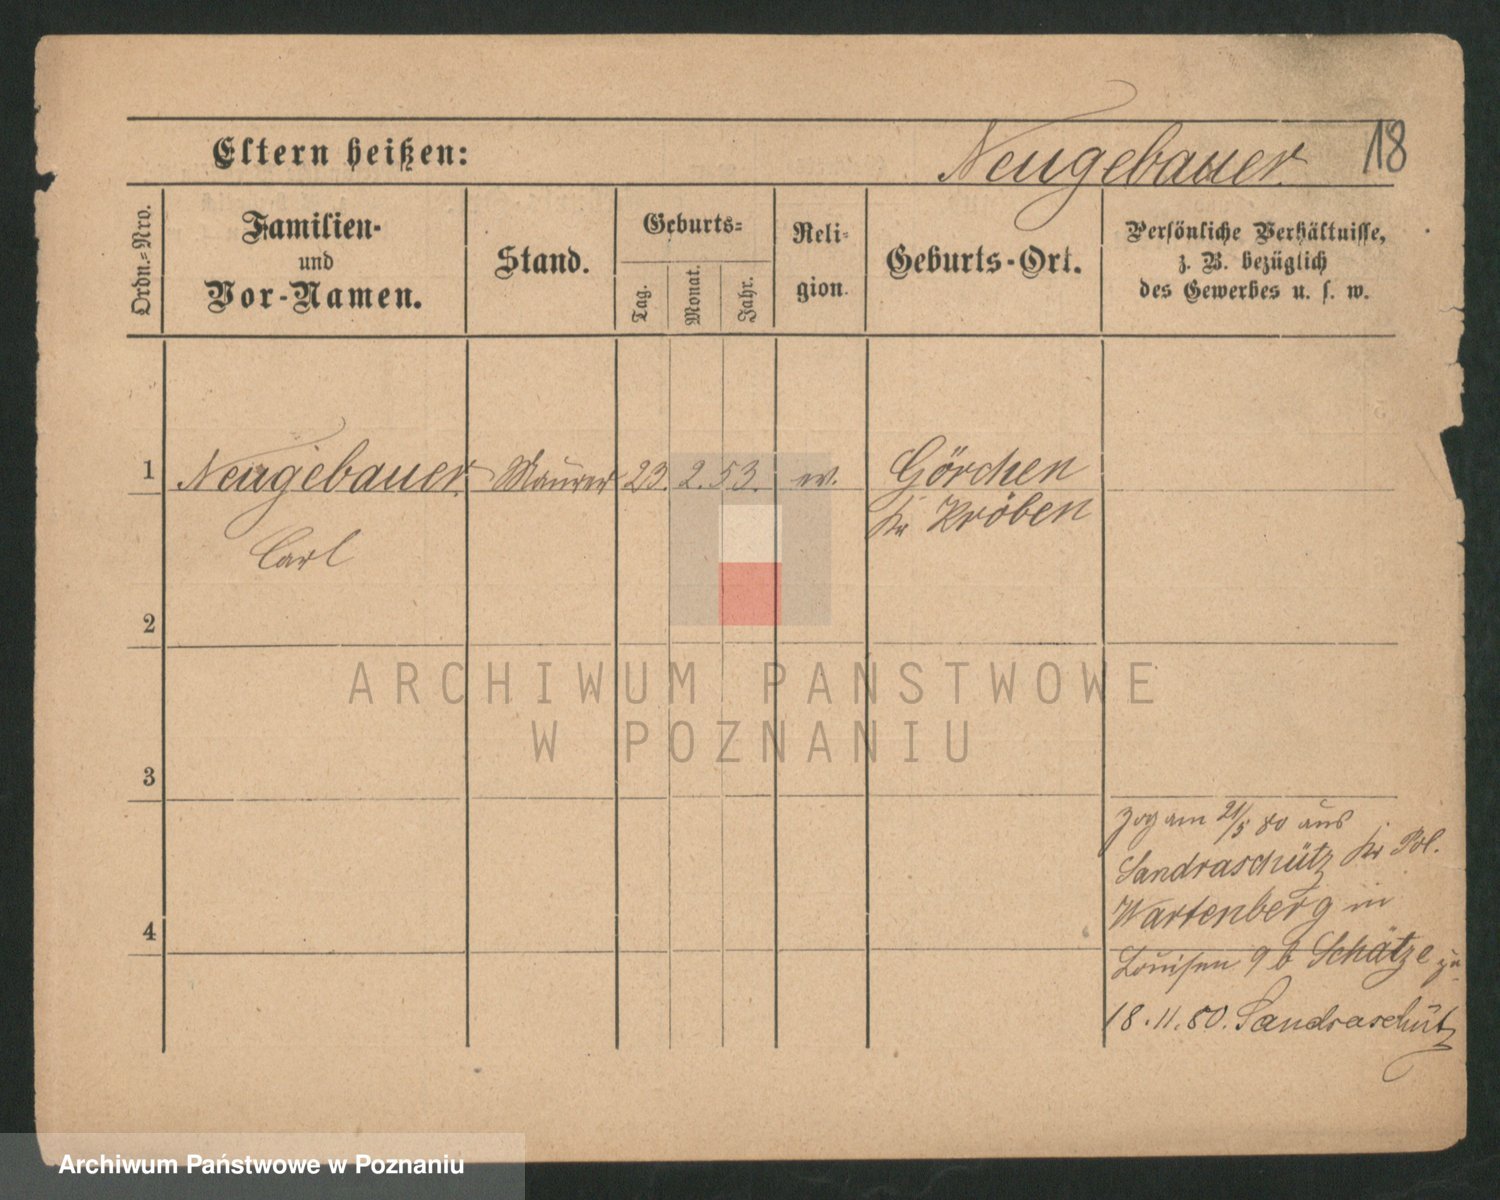 Eltern heißen:
Neugebauer
18
Ordn.-Nro.
Familien-
und
Vor-Namen.
Stand.
Geburts-
Tag.
Monat.
Jahr.
Reli-
gion.
Geburts-Ort.
Persönliche Verhältnisse,
z. B. bezüglich
des Gewerbes u. s. w.
1
Neugebauer
Maurer
23. 2. 53.
ev.
Görchen
Kr Kröben
Carl
2
ARCHIWUM PAŃSTWOWE
W POZNANIU
3
zog am 21/5 80 aus
Sandraschütz Kr Pol.
Wartenberg in
4
Louisen 9 b Schätze zu
18.11.80. Sandraschütz
Archiwum Państwowe w Poznaniu